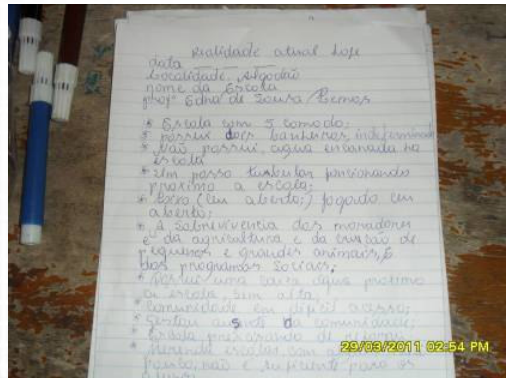 Realidade atual hoje
data
Localidade. Algodão
nome da Escola
profª Edna de Sousa Lemos
* Escola com 5 comodo;
* possui dois banheiros, indeterminado
* Não possui, agua encanada na
escola
* Um posso tubular funcionando
proximo a escola;
* Lixo (em aberto;) jogado em
aberto;
* A sobrevivencia dos moradores
e da agricultura e da criação de
pequenos e grandes animais, é
dos programas sociais;
* Possui uma caixa dgua proximo
a escola, sem alta,
* Comunidade em dificil acesso;
da comunidade;
* Escola precisando de
* Merenda escolar com
não é suficiente para os
29/03/2011 02:54 PM